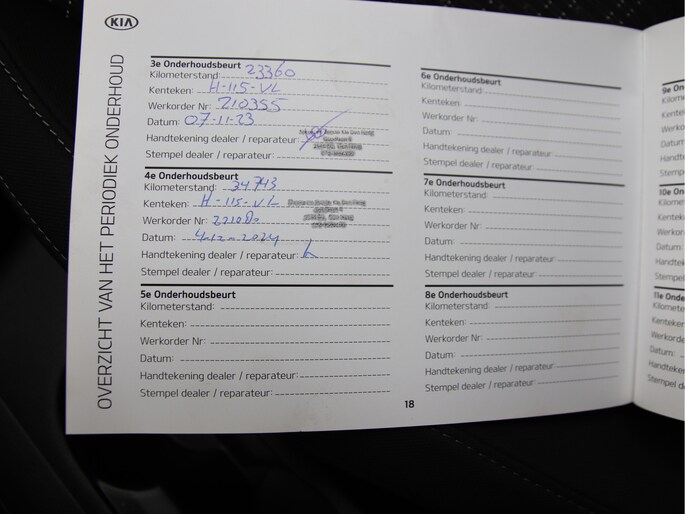 KIA
OVERZICHT VAN HET PERIODIEK ONDERHOUD
3e Onderhoudsbeurt
Kilometerstand: 23360
Kenteken: H-115-VL
Werkorder Nr: 210355
Datum: 07-11-23
Handtekening dealer / reparateur:
Stempel dealer / reparateur:
4e Onderhoudsbeurt
Kilometerstand: 34743
Kenteken: H-115-VL
Werkorder Nr:
Datum:
Handtekening dealer / reparateur:
Stempel dealer / reparateur:
5e Onderhoudsbeurt
Kilometerstand:
Kenteken:
Werkorder Nr:
Datum:
Handtekening dealer / reparateur:
Stempel dealer / reparateur:
6e Onderhoudsbeurt
Kilometerstand:
Kenteken:
Werkorder Nr:
Datum:
Handtekening dealer / reparateur:
Stempel dealer / reparateur:
7e Onderhoudsbeurt
Kilometerstand:
Kenteken:
Werkorder Nr:
Datum:
Handtekening dealer / reparateur:
Stempel dealer / reparateur:
8e Onderhoudsbeurt
Kilometerstand:
Kenteken:
Werkorder Nr:
Datum:
Handtekening dealer / reparateur:
Stempel dealer / reparateur:
18